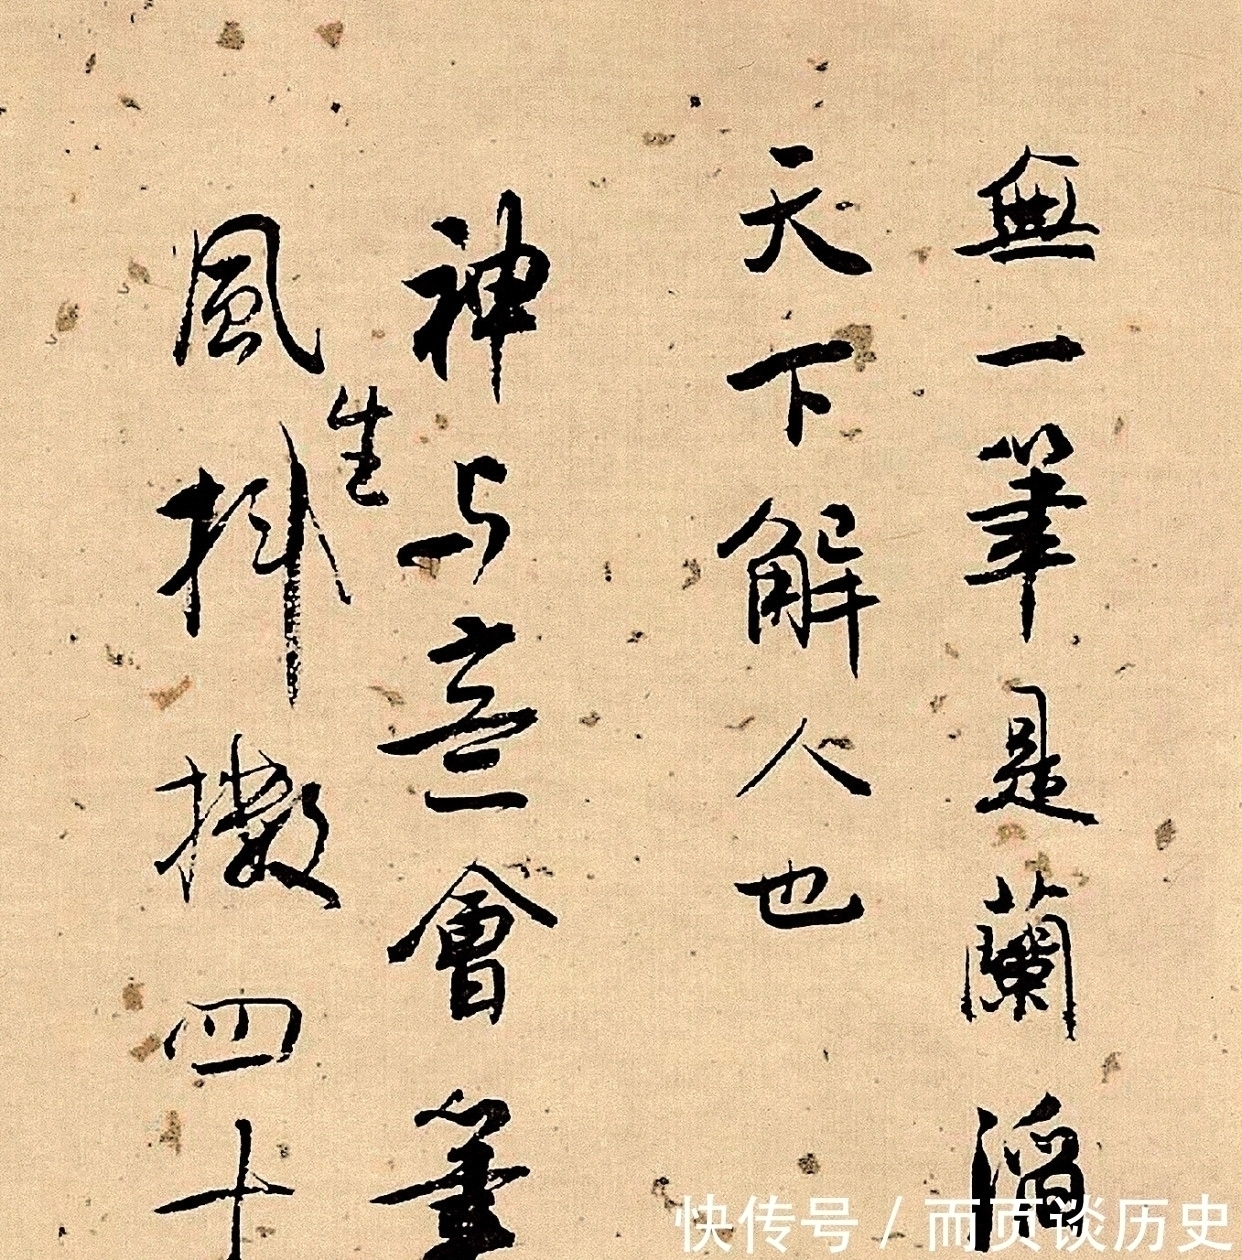 無一筆是蘭滔
天下解人也
神与意會筆
風生抖擻四十
快传号 / 而页谈历史